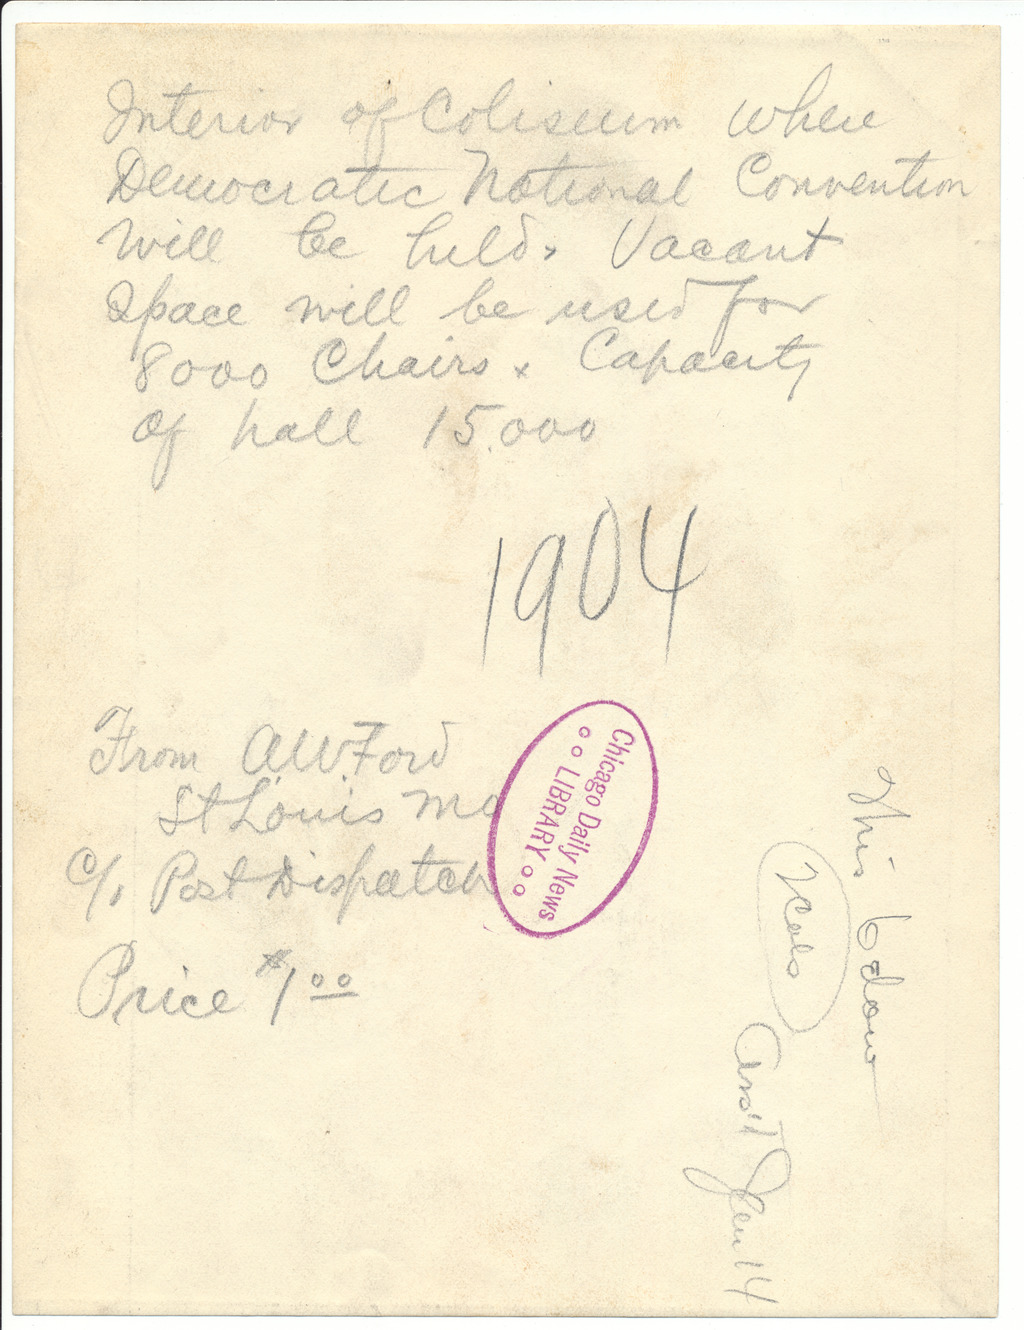 Interior of Coliseum where
Democratic National Convention
will be held x Vacant
space will be used for
8000 Chairs x Capacity
of hall 15,000
1904
From AW Ford
St Louis Mo
c/o Post Dispatch
Price $1.00
Chicago Daily News
LIBRARY
This
Cols
14